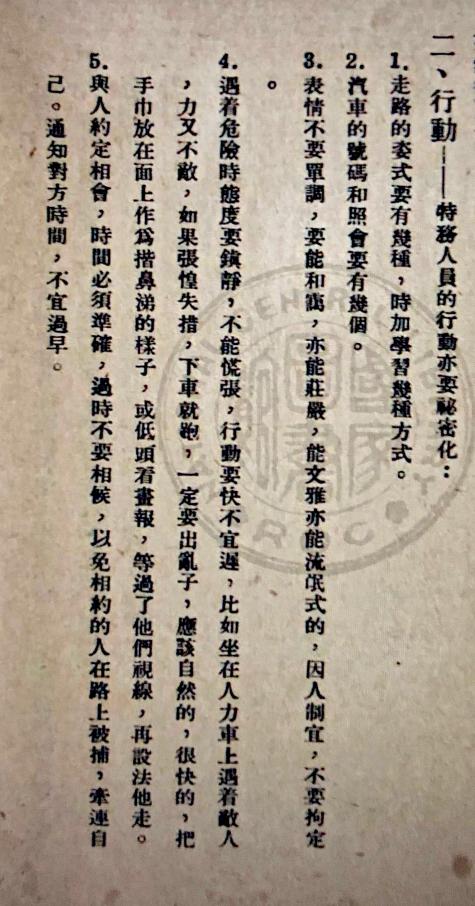 二、行動——特務人員的行動亦要祕密化：
1.走路的姿式要有幾種，時加學習幾種方式。
2.汽車的號碼和照會要有幾個。
3.表情不要單調，要能和藹，亦能莊嚴，能文雅亦能流氓式的，因人制宜，不要拘定
。
4.遇着危險時態度要鎮靜，不能慌張，行動要快不宜遲，比如坐在人力車上遇着敵人
，力又不敵，如果張惶失措，下車就跑，一定要出亂子，應該自然的，很快的，把
手巾放在面上作爲揩鼻涕的樣子，或低頭看畫報，等過了他們視線，再設法他走。
5.與人約定相會，時間必須準確，過時不要相候，以免相約的人在路上被捕，牽連自
己。通知對方時間，不宜過早。